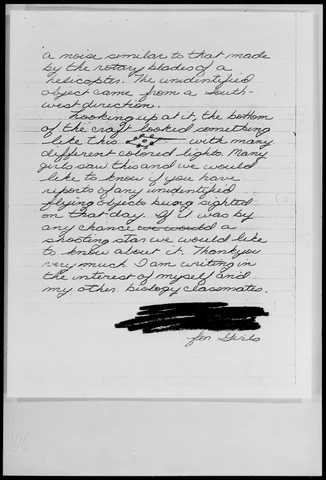 a noise similar to that made
by the rotary blades of a
helicopter. The unidentified
object came from a South-
west direction.
Looking up at it, the bottom
of the craft looked something
like this with many
different colored lights. Many
girls saw this and we would
like to know if you have
reports of any unidentified
flying objects being sighted
on that day. If it was by
any chance we would a
shooting star we would like
to know about it. Thank you
very much. I am writing in
the interest of myself and
my other biology classmates.
for Girls